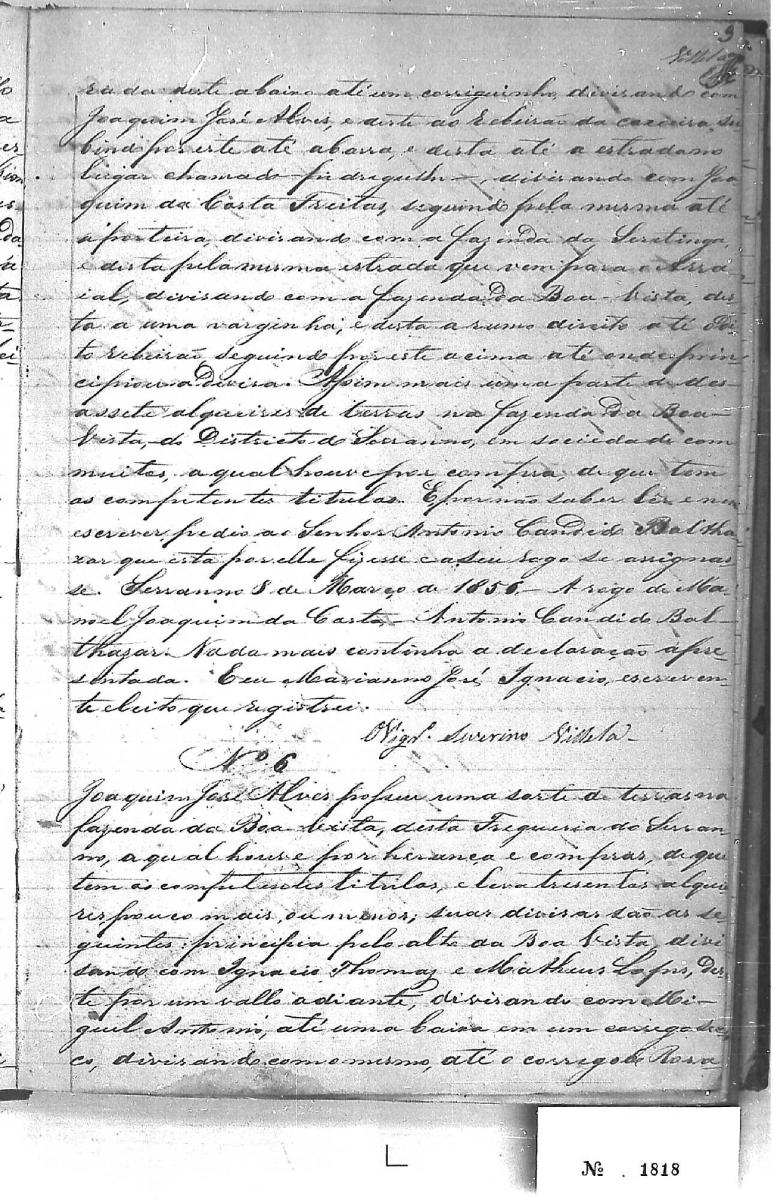 3
Villela
ra da deste abaixo até um corriguinho, divisando com
Joaquim José Alves, e deste ao Ribeirão da caxoeira, su
bindo por este até a barra, e desta até a estrada no
lugar chamado, divisando com Joa
quim da Costa Freitas, seguindo pela mesma até
a porteira, divisando com a fazenda da Seritinga,
e desta pela mesma estrada que vem para o Arra-
ial, divisando com a fazenda da Boa-Vista, des-
ta a uma varginha, e desta a rumo direito até o di
to ribeirão seguindo por este acima até onde prin-
cipiou a divisa. Assim mais uma parte de des-
assete alqueires de terras na fazenda da Boa-
Vista, do Districto do Serranno, em sociedade com
muitos, a qual houve por compra, de que tem
os competentes titulos. E por não saber ler e nem
escrever pedio ao Senhor Antonio Candido Baltha
zar que esta por elle fizesse e a seu rogo se assignas
se. Serranno 8 de Março de 1856- A rogo de Ma-
noel Joaquim da Costa- Antonio Candido Bal-
thazar. Nada mais continha a declaração apre
sentada. E eu Marianno José Ignacio, escreven-
te eleito que registrei.
Vigr.º Severino Villela-
Nº 6
Joaquim José Alves possue uma sorte de terras na
fazenda da Boa Vista, desta Freguezia do Serran-
no, a qual houve por herança e compras, de que
tem os competentes titulos, e leva tresentas alquei
res pouco mais, ou menos; suas divisas são as se-
guintes: principia pelo alto da Boa Vista, divi
sando com Ignacio Thomaz e Matheus Lopes, des-
te por um vallo adiante, divisando com Mi-
guel Antonio, até uma baixa em um corrego sec-
co, divisando com o mesmo, até o corrego de Rosa
Nº 1818